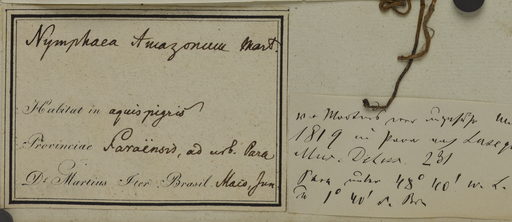 Nymphaea Amazonum Mart.
Habitat in aquis pigris
Provinciae Paraënsis, ad urb. Para
Dr. Martius Iter Brasil. Majo, Jun
v. Martius
1819 in Para
231
Para unter 48° 40' w. L.
1° 40' s. Br